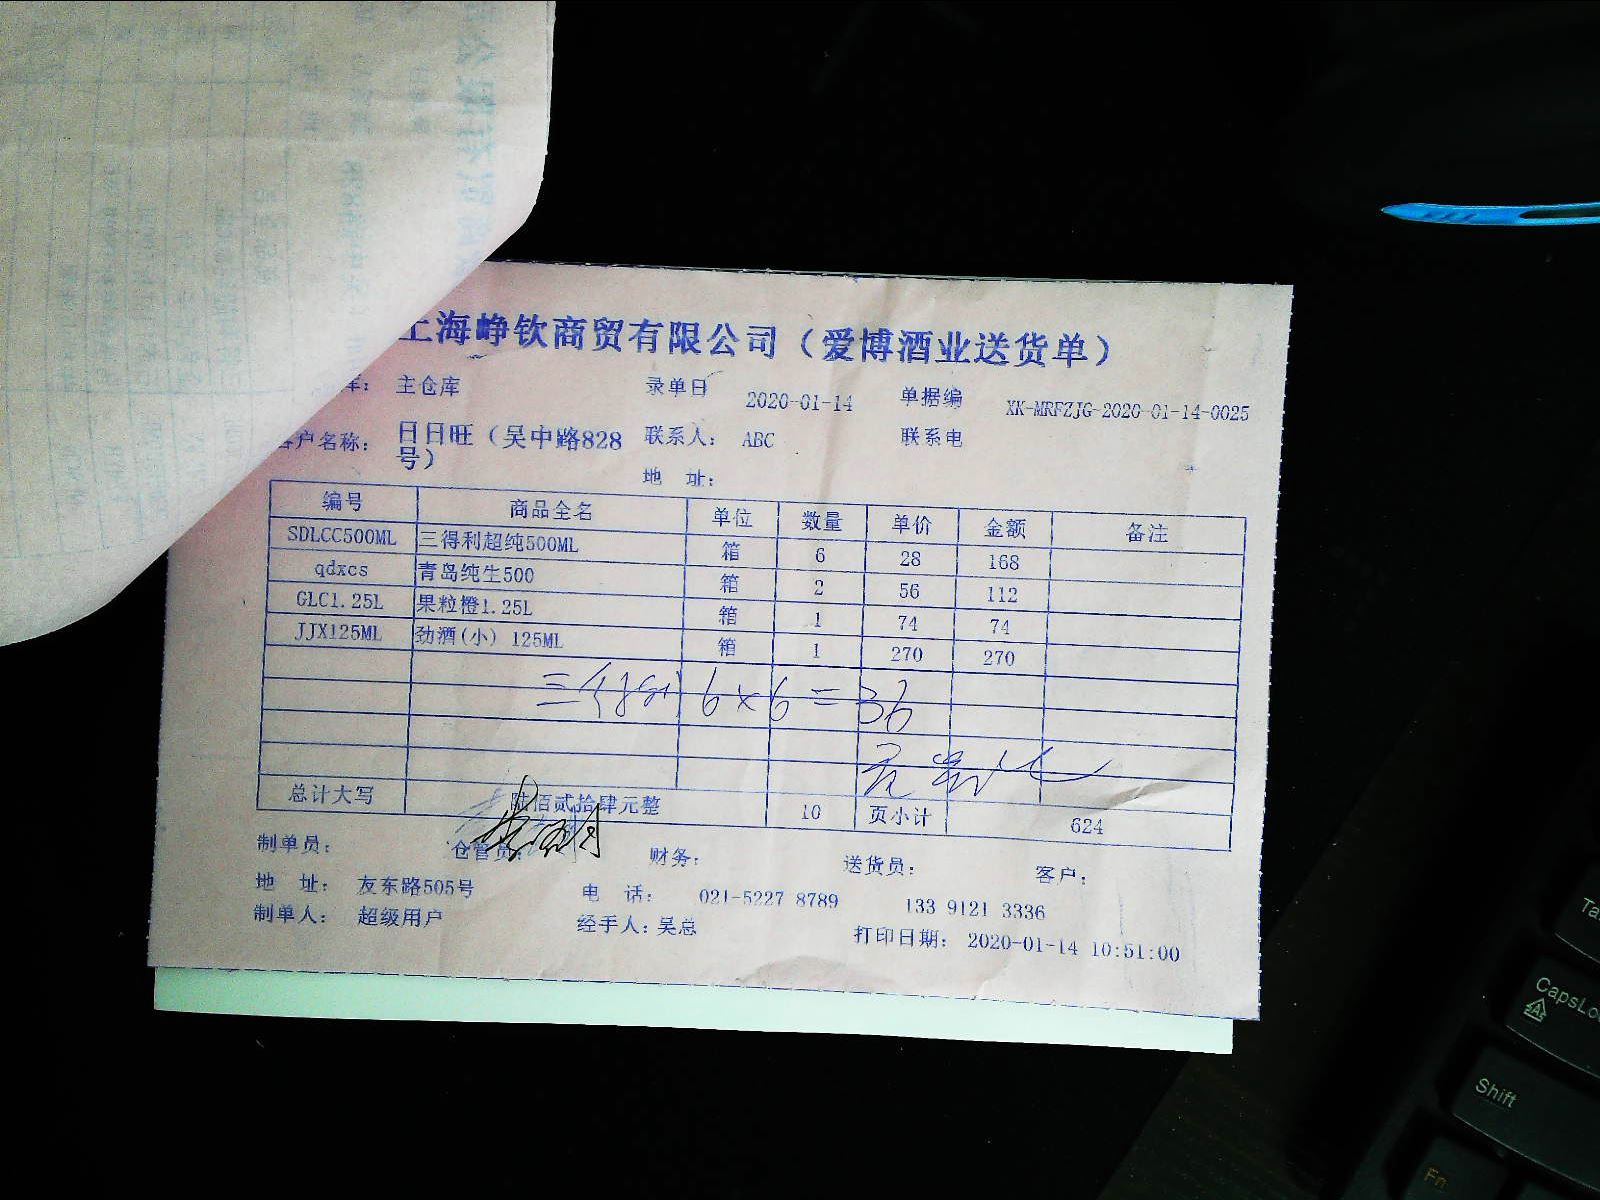 上海峥钦商贸有限公司（爱博酒业送货单）
库： 主仓库 录单日 2020-01-14 单据编 XK-MRFZJG-2020-01-14-0025
客户名称： 日日旺（吴中路828号） 联系人： ABC 联系电
地 址：
编号 商品全名 单位 数量 单价 金额 备注
SDLCC500ML 三得利超纯500ML 箱 6 28 168
qdxcs 青岛纯生500 箱 2 56 112
GLC1.25L 果粒橙1.25L 箱 1 74 74
JJX125ML 劲酒(小) 125ML 箱 1 270 270
三得利 6×6=36
总计大写 陆佰贰拾肆元整 10 页小计 624
制单员： 仓管员： 财务： 送货员： 客户：
地 址： 友东路505号 电 话： 021-5227 8789 133 9121 3336
制单人： 超级用户 经手人：吴总 打印日期： 2020-01-14 10:51:00
CapsLo
Shift
Fn